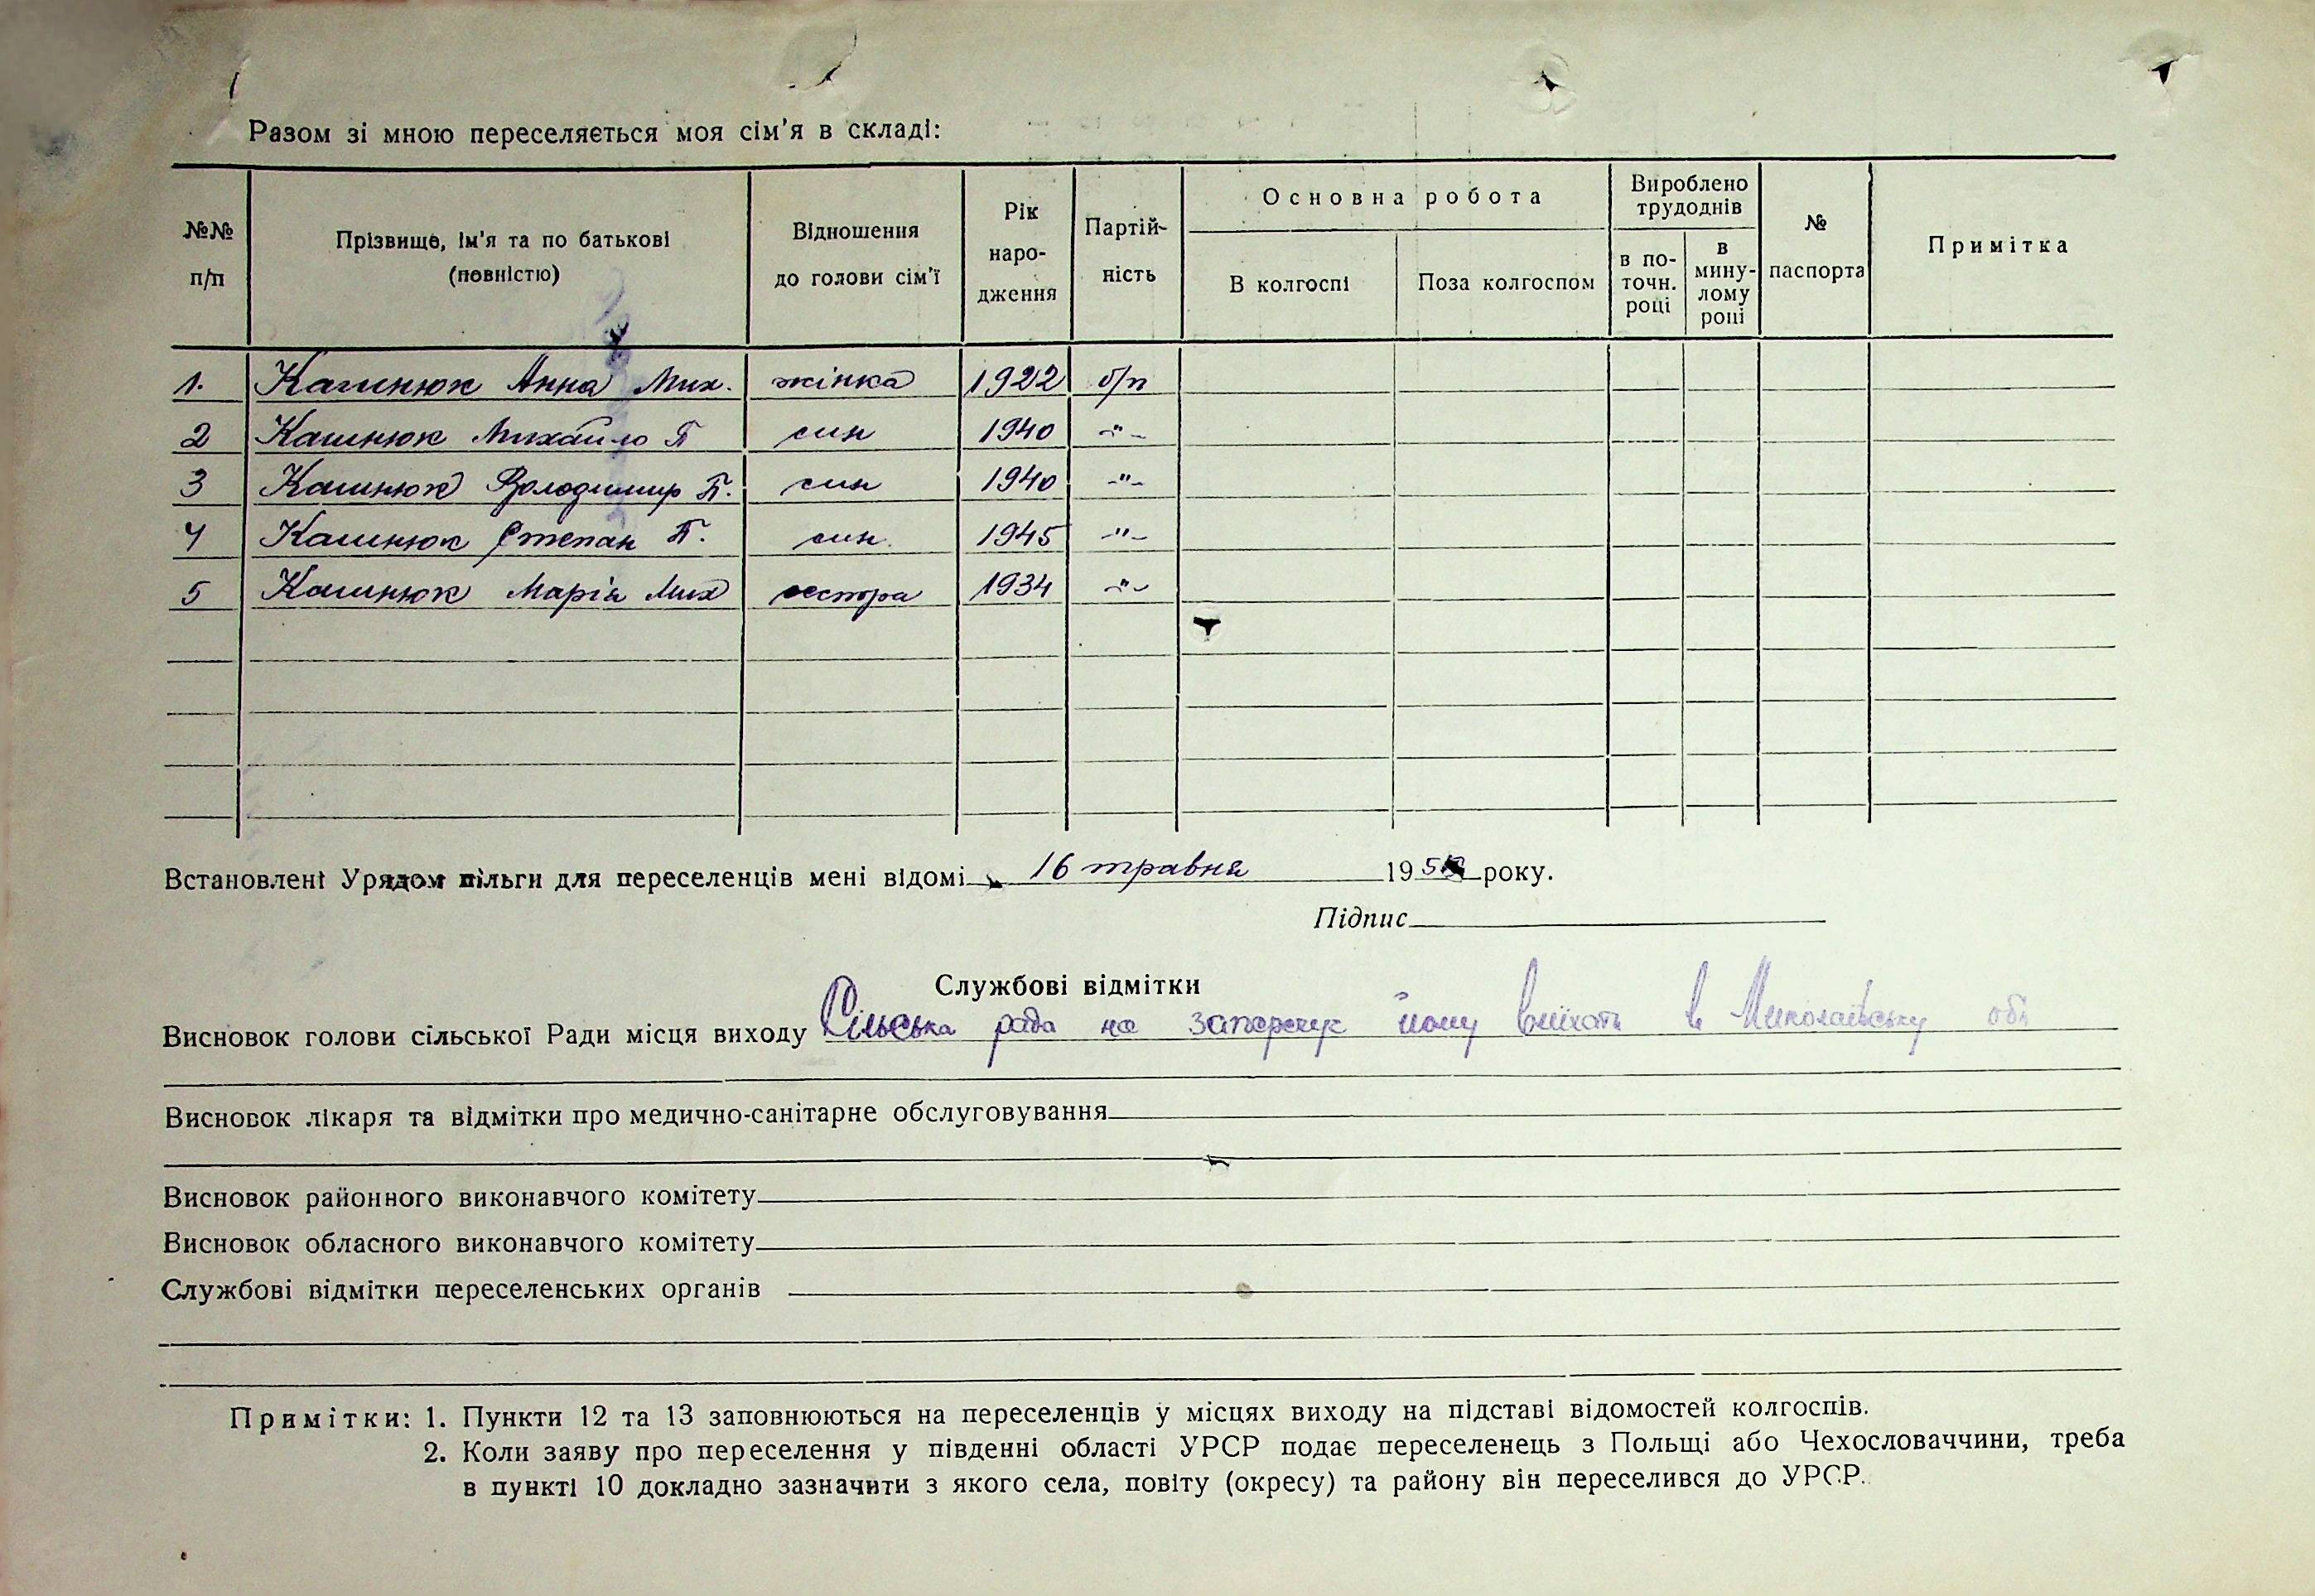 Разом зі мною переселяється моя сім'я в складі:
№№ п/п
Прізвище, ім'я та по батькові (повністю)
Відношення до голови сім'ї
Рік народження
Партійність
Основна робота
В колгоспі
Поза колгоспом
Вироблено трудоднів
в поточн. році
в минулому році
№ паспорта
Примітка
1. Кашнюк Анна Мих. жінка 1922 б/п
2 Кашнюк Михайло П син 1940 -"-
3 Кашнюк Володимир П. син 1940 -"-
4 Кашнюк Степан П. син 1945 -"-
5 Кашнюк Марія Мих сестра 1934 -"-
Встановлені Урядом пільги для переселенців мені відомі 16 травня 195 року.
Підпис
Службові відмітки
Висновок голови сільської Ради місця виходу Сільська рада не заперечує йому виїхати в Миколаївську обл
Висновок лікаря та відмітки про медично-санітарне обслуговування
Висновок районного виконавчого комітету
Висновок обласного виконавчого комітету
Службові відмітки переселенських органів
Примітки: 1. Пункти 12 та 13 заповнюються на переселенців у місцях виходу на підставі відомостей колгоспів.
2. Коли заяву про переселення у південні області УРСР подає переселенець з Польщі або Чехословаччини, треба
в пункті 10 докладно зазначити з якого села, повіту (окресу) та району він переселився до УРСР.